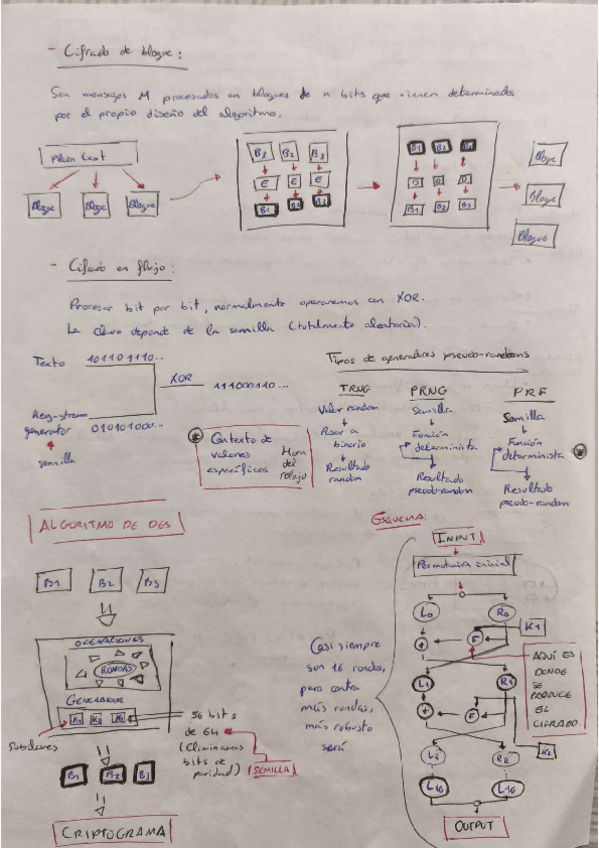 - Cifrado de bloque:
Son mensajes M procesados en bloques de n bits que vienen determinados
por el propio diseño del algoritmo.
Plain text
Bloque Bloque Bloque
B1 B2 B3
E E E
B1 B2 B3
B1 B2 B3
D D D
B1 B2 B3
Bloque
Bloque
Bloque
- Cifrado en flujo:
Procesar bit por bit, normalmente operaremos con XOR.
La clave depende de la semilla (totalmente aleatoria).
Texto 101101110...
XOR 111000110...
Key-stream
generator 010101000...
semilla
Contexto de
valores
específicos
Hora
del
reloj
Tipos de generadores pseudo-randoms
TRNG
Valor random
Pasar a
binario
Resultado
random
PRNG
Semilla
Función
determinista
Resultado
pseudo-random
PRF
Semilla
Función
determinista
Resultado
pseudo-random
ALGORITMO DE DES
B1 B2 B3
OPERACIONES
RONDAS
GENERADOR
K1 K2 K3
Subclaves
56 bits
de 64
(Eliminamos
bits de
paridad)
SEMILLA
B1 B2 B3
CRIPTOGRAMA
ESQUEMA:
Casi siempre
son 16 rondas,
pero contra
más rondas,
más robusto
será
INPUT
Permutación inicial
L0 R0
K1
+ F
AQUÍ ES
DONDE
SE
PRODUCE
EL
CIFRADO.
L1 R1
+ F
K2
L2 R2
L16 L16
OUTPUT